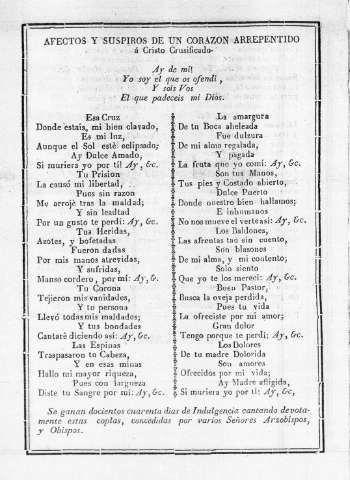 AFECTOS Y SUSPIROS DE UN CORAZON ARREPENTIDO
á Cristo Crusificado.
Ay de mi!
Yo soy el que os ofendí,
Y sois Vos
El que padeceis mi Dios.
Esa Cruz
Donde estais, mi bien clavado,
Es mi luz,
Aunque el Sol esté eclipsado;
Ay Dulce Amado,
Si muriera yo por tí! Ay, &c.
Tu Prision
La causó mi libertad,
Pues sin razon
Me arrojé tras la maldad;
Y sin lealtad
Por un gusto te perdí: Ay, &c.
Tus Heridas,
Azotes, y bofetadas
Fueron dadas
Por mis manos atrevidas,
Y sufridas,
Manso cordero, por mí: Ay, &c.
Tu Corona
Tejieron mis vanidades,
Y tu persona
Llevó todas mis maldades;
Y tus bondades
Cantaré diciendo asi: Ay, &c.
Las Espinas
Traspasaron tu Cabeza,
Y en esas minas
Hallo mi mayor riqueza,
Pues con largueza
Diste tu Sangre por mí: Ay, &c.
La amargura
De tu Boca aheleada
Fue dulzura
De mi alma regalada,
Y pagada
La fruta que yo comí: Ay, &c.
Son tus Manos,
Tus pies y Costado abierto,
Dulce Puerto
Donde nuestro bien hallamos;
E inhumanos
No nos mueve el verte asi: Ay, &c.
Los Baldones,
Las afrentas tan sin cuento,
Son blasones
De mi alma, y mi contento;
Solo siento
Que yo te los merecí: Ay, &c.
Buen Pastor,
Busca la oveja perdida,
Pues tu vida
La ofreciste por mi amor;
Gran dolor
Tengo porque te perdí: Ay, &c.
Los Dolores
De tu madre Dolorida
Son amores
Ofrecidos por mi vida;
Ay Madre afligida,
Si muriera yo por tí: Ay, &c.
Se ganan docientos cuarenta dias de Indulgencia cantando devota-
mente estas coplas, concedidas por varios Señores Arzobispos,
y Obispos.